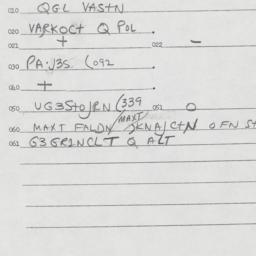 010 QGL VASTN
020 VARKOCT Q POL
021 + 022 -
030 PA.J3S. (092
040 +
050 UG3STOJRN (339 051 O
MAXT
060 MAXT FALDN JKNAJCTN OFN ST
061 G3GRINCLT Q ALT